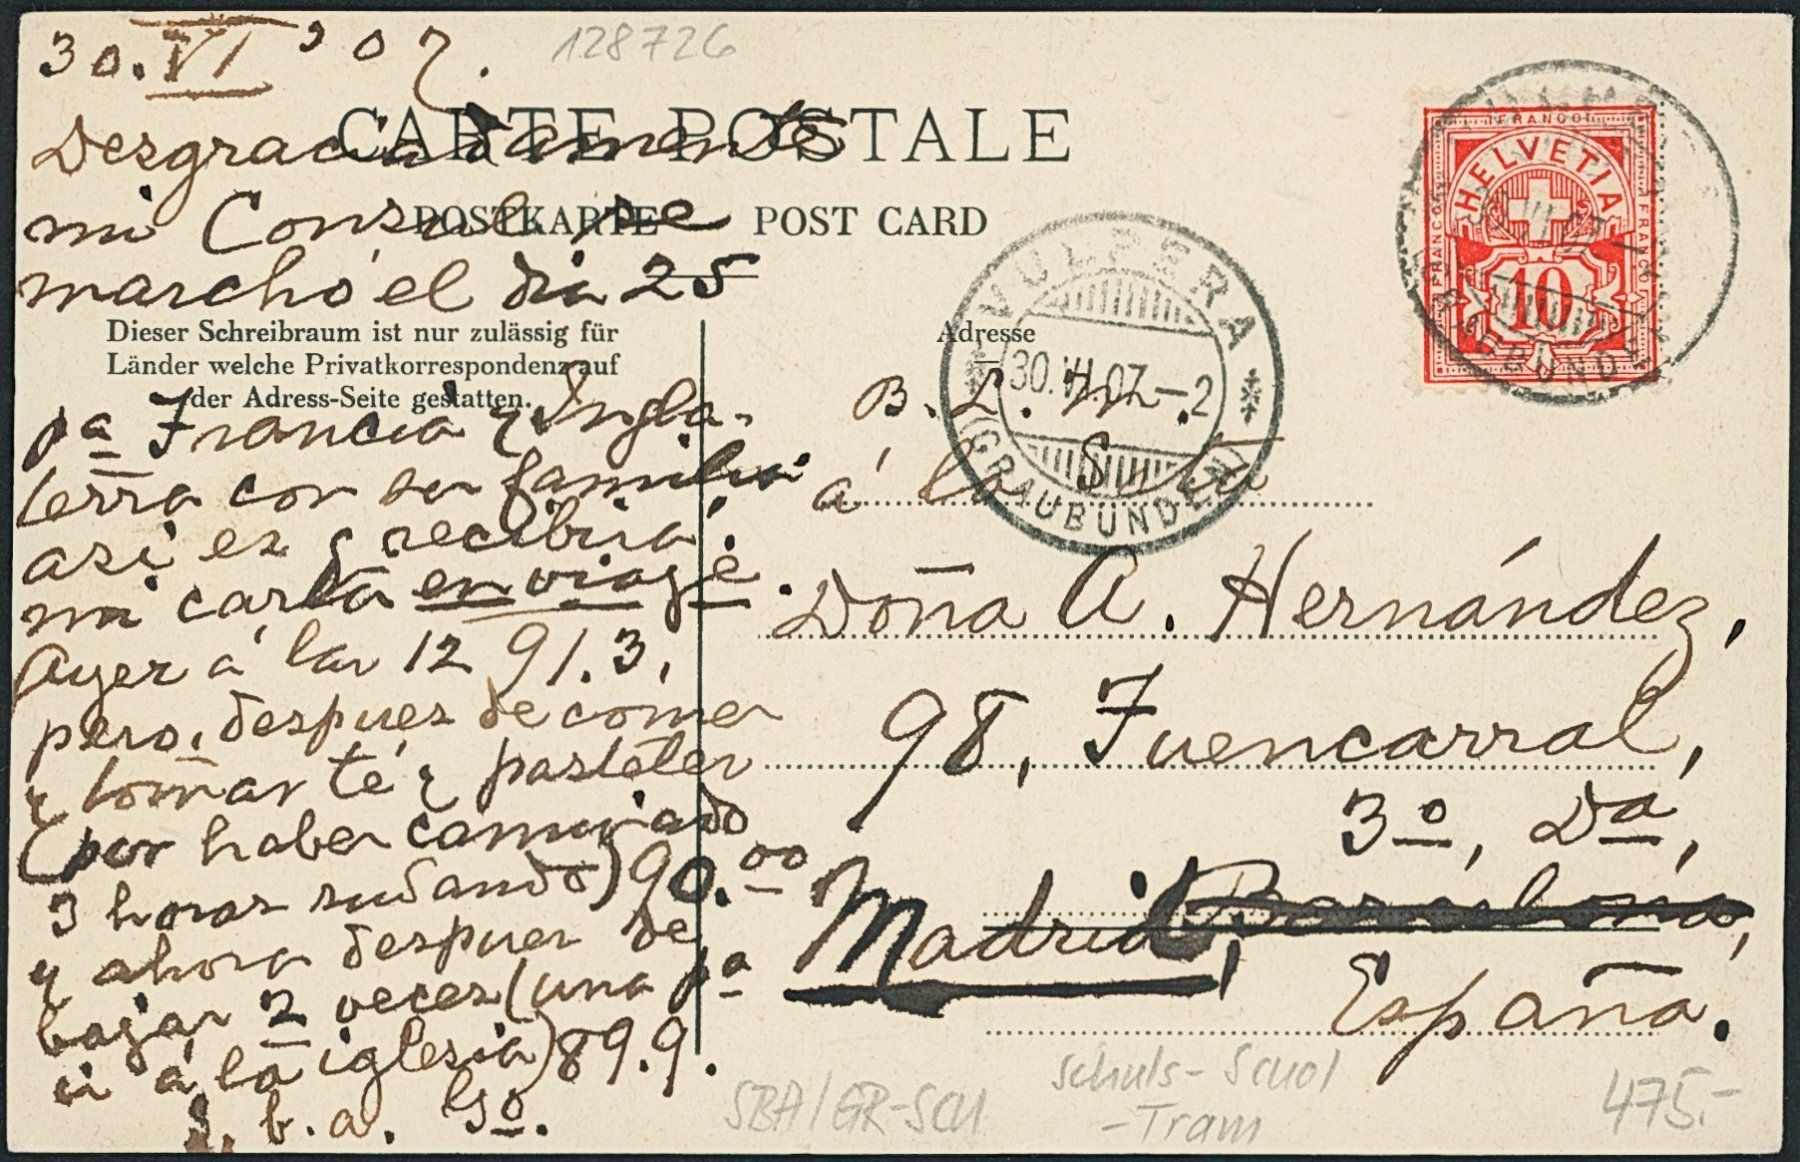 30.VI '07.
128726
CARTE POSTALE
Desgraciadamente
POSTKARTE POST CARD
mi Consul se
marchó el dia 25
Dieser Schreibraum ist nur zulässig für
Länder welche Privatkorrespondenz auf
der Adress-Seite gestatten.
pa Francia y Ingla-
terra con su familia
asi es q recibirá
mi carta en viage.
Ayer á las 12 91.3,
pero, despues de comer
y tomar té y pasteles
(por haber caminado
3 horas sudando) 90.00
y ahora despues de
bajar 2 veces (una pa
ir á la iglesia) 89.9.
s. b. a. Go.
Adresse
B. L. M.
á la Srta
Doña A. Hernández,
98, Fuencarral,
3o, Da,
Madrid, Barcelona,
España.
VULPERA
30.VI.07.-2
(GRAUBÜNDEN)
FRANCO
HELVETIA
FRANCO
FRANCO
10
SBA/GR-SCH
Schuls-Scuol
-Tram
475.-